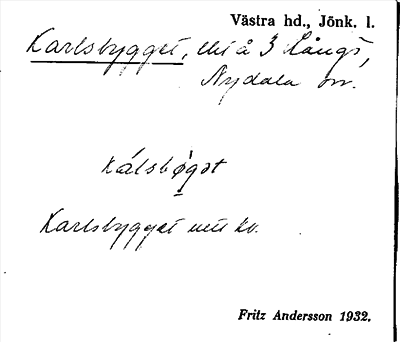 Västra hd., Jönk. l.
Karlsbygget, till å 3 Långö,
Nydala sn.
kálsbýgət
Karlsbygget utt. kv.
Fritz Andersson 1932.